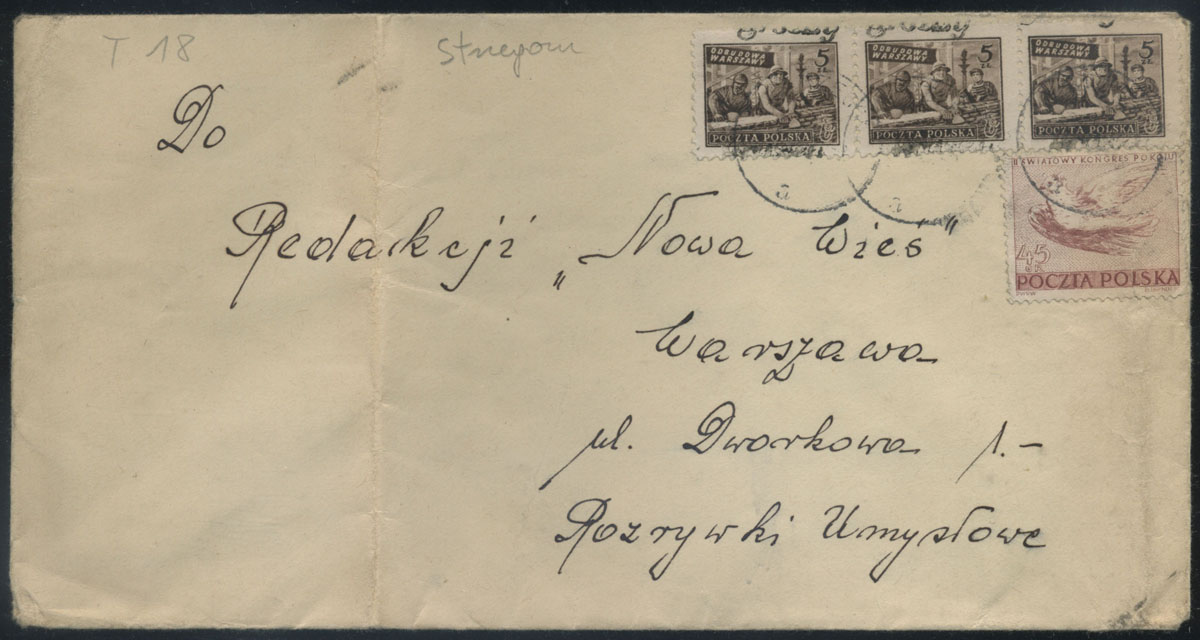 T 18
Strzegom
groszy groszy groszy
ODBUDOWA WARSZAWY 5 ZŁ. POCZTA POLSKA
ODBUDOWA WARSZAWY 5 ZŁ. POCZTA POLSKA
ODBUDOWA WARSZAWY 5 ZŁ. POCZTA POLSKA
a
a
a
II ŚWIATOWY KONGRES POKOJU
45
ZŁ.
POCZTA POLSKA
Do
Redakcji „Nowa Wieś"
Warszawa
ul. Dworkowa 1.-
Rozrywki Umysłowe